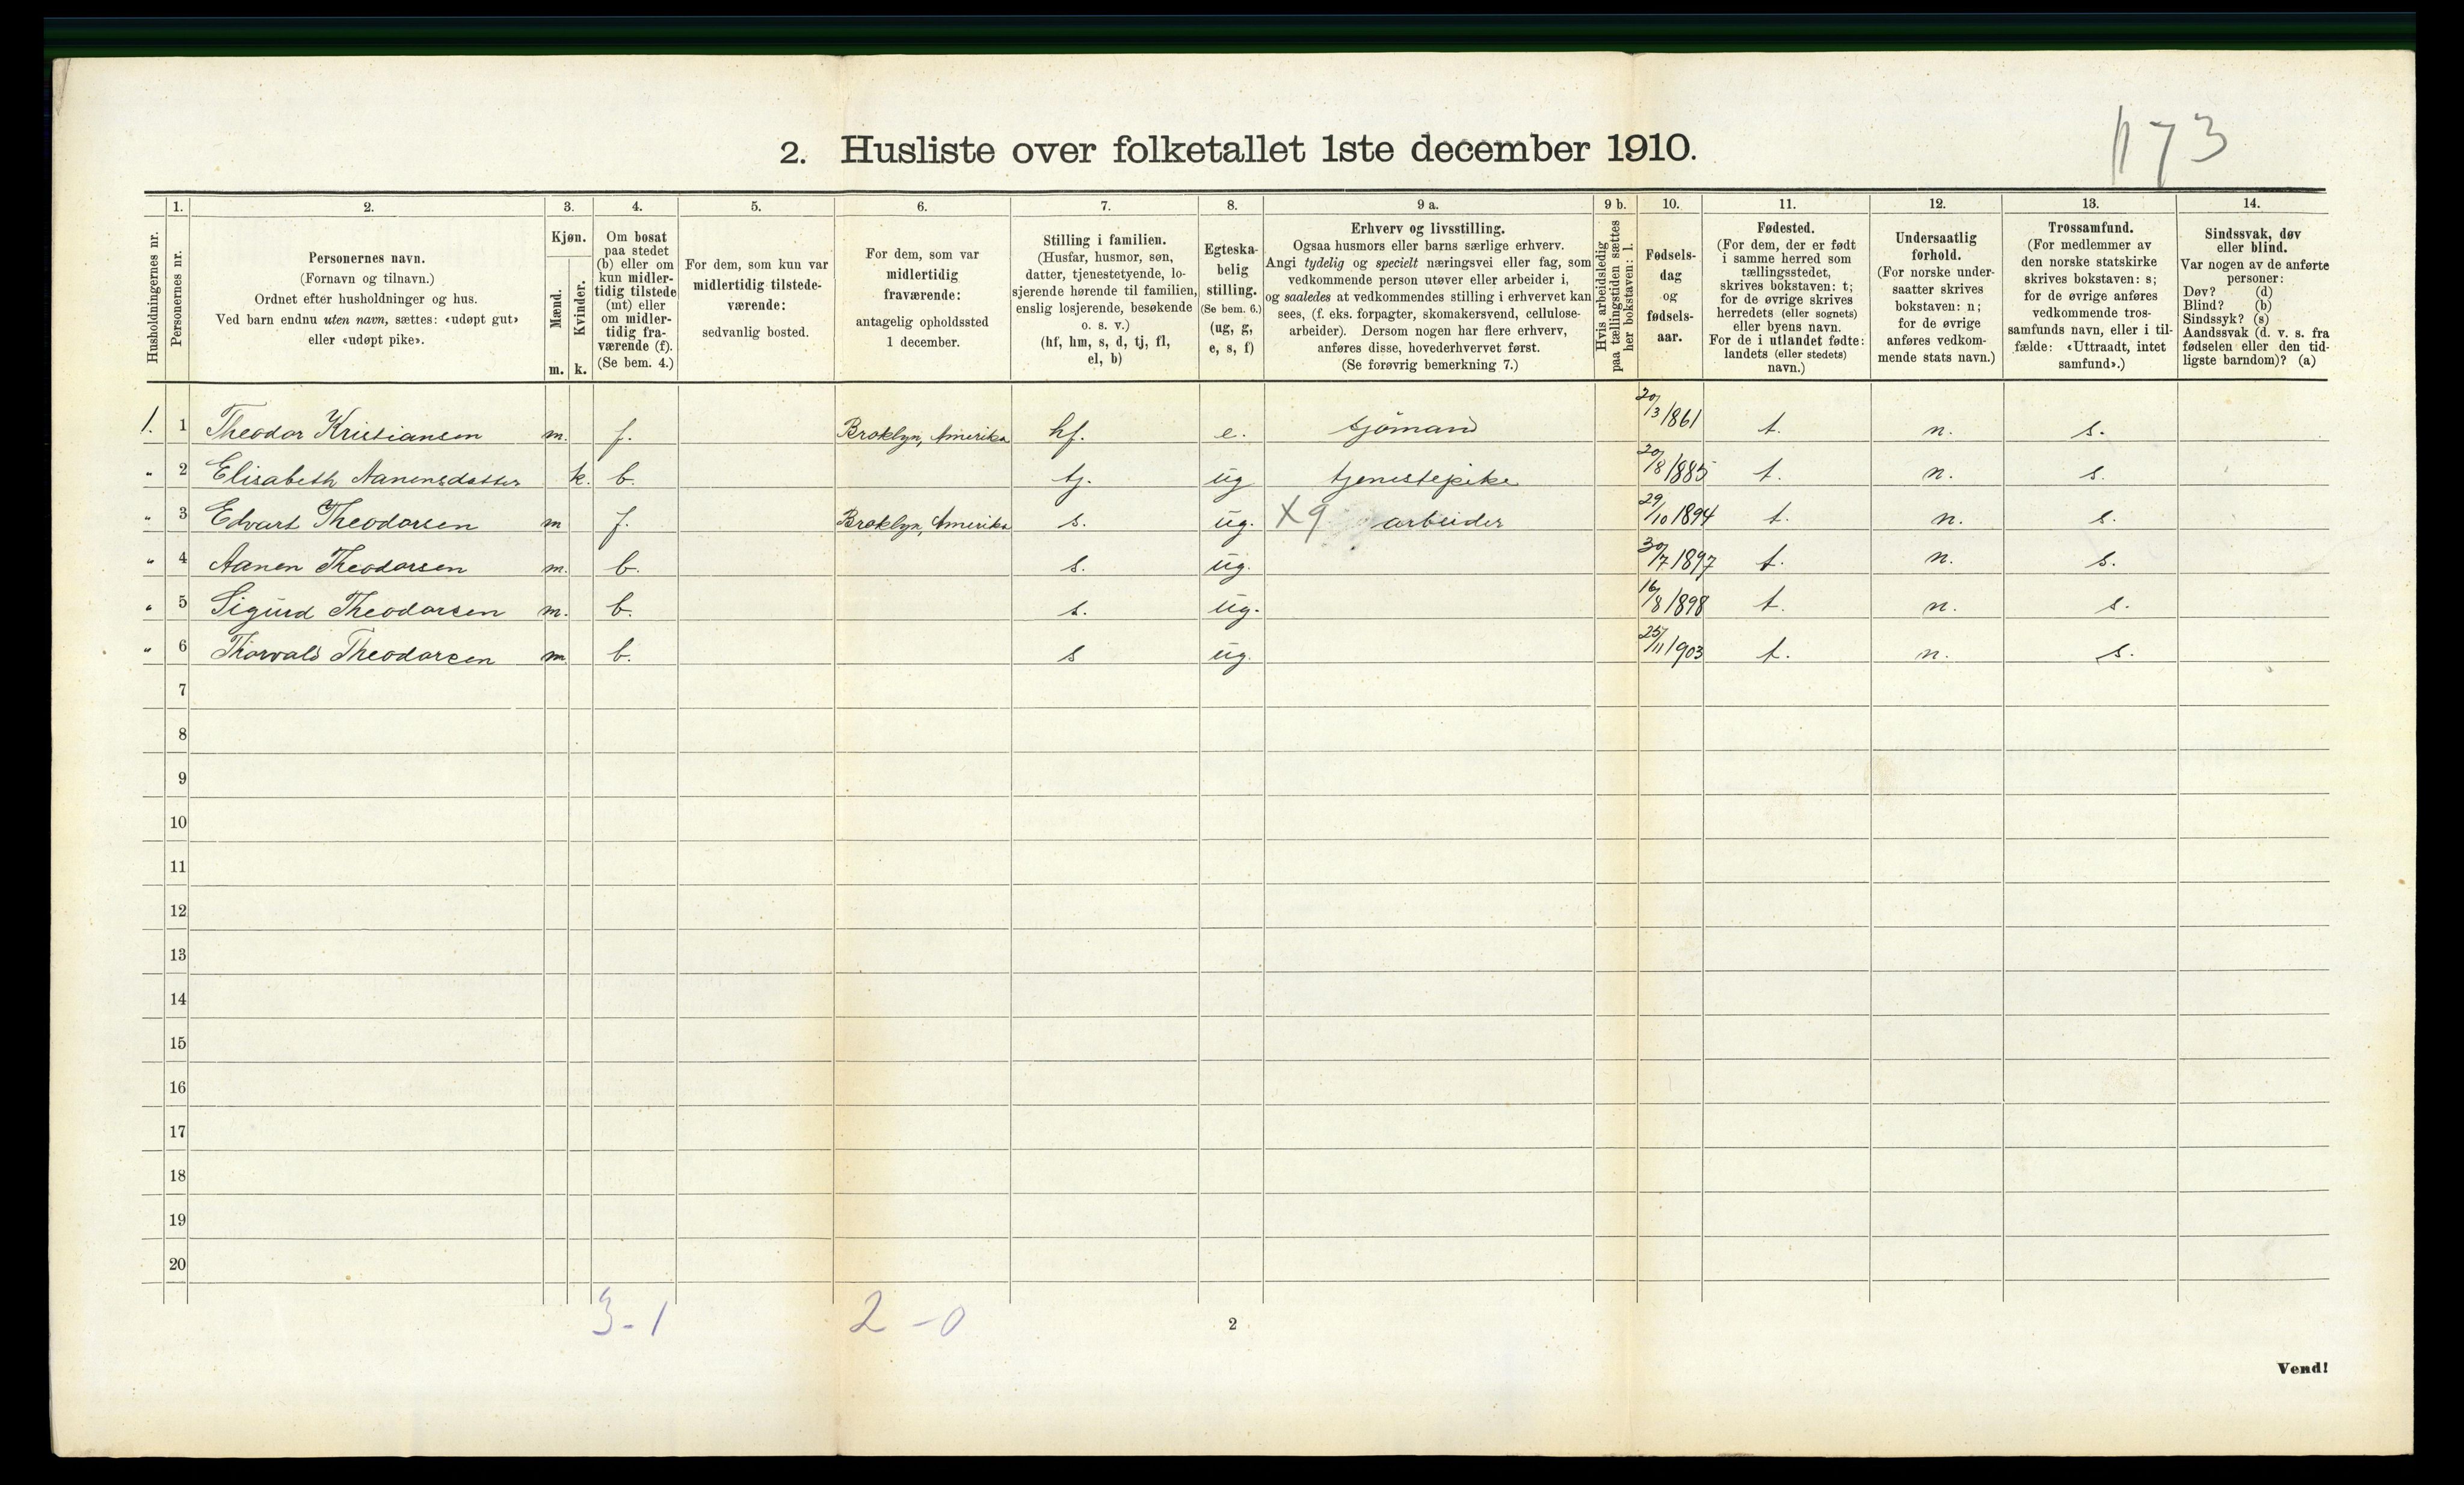 173
2. Husliste over folketallet 1ste december 1910.
1. 2. 3. 4. 5. 6. 7. 8. 9 a. 9 b. 10. 11. 12. 13. 14.
Husholdningernes nr.
Personernes nr.
Personernes navn.
(Fornavn og tilnavn.)
Ordnet efter husholdninger og hus.
Ved barn endnu uten navn, sættes: «udøpt gut»
eller «udøpt pike».
Kjøn.
Mænd.
Kvinder.
m. k.
Om bosat
paa stedet
(b) eller om
kun midler-
tidig tilstede
(mt) eller
om midler-
tidig fra-
værende (f).
(Se bem. 4.)
For dem, som kun var
midlertidig tilstede-
værende:
sedvanlig bosted.
For dem, som var
midlertidig
fraværende:
antagelig opholdssted
1 december.
Stilling i familien.
(Husfar, husmor, søn,
datter, tjenestetyende, lo-
sjerende hørende til familien,
enslig losjerende, besøkende
o. s. v.)
(hf, hm, s, d, tj, fl,
el, b)
Egteska-
belig
stilling.
(Se bem. 6.)
(ug, g,
e, s, f)
Erhverv og livsstilling.
Ogsaa husmors eller barns særlige erhverv.
Angi tydelig og specielt næringsvei eller fag, som
vedkommende person utøver eller arbeider i,
og saaledes at vedkommendes stilling i erhvervet kan
sees, (f. eks. forpagter, skomakersvend, cellulose-
arbeider). Dersom nogen har flere erhverv,
anføres disse, hovederhvervet først.
(Se forøvrig bemerkning 7.)
Hvis arbeidsledig
paa tællingstiden sættes
her bokstaven: l.
Fødsels-
dag
og
fødsels-
aar.
Fødested.
(For dem, der er født
i samme herred som
tællingsstedet,
skrives bokstaven: t;
for de øvrige skrives
herredets (eller sognets)
eller byens navn.
For de i utlandet fødte:
landets (eller stedets)
navn.)
Undersaatlig
forhold.
(For norske under-
saatter skrives
bokstaven: n;
for de øvrige
anføres vedkom-
mende stats navn.)
Trossamfund.
(For medlemmer av
den norske statskirke
skrives bokstaven: s;
for de øvrige anføres
vedkommende tros-
samfunds navn, eller i til-
fælde: «Uttraadt, intet
samfund».)
Sindssvak, døv
eller blind.
Var nogen av de anførte
personer:
Døv? (d)
Blind? (b)
Sindssyk? (s)
Aandssvak (d. v. s. fra
fødselen eller den tid-
ligste barndom)? (a)
1. 1 Theodor Kristiansen m. f. Broklyn, Amerika hf. e. sjömand 20/3 1861 t. n. s.
" 2 Elisabeth Aanensdatter k. b. tj. ug tjenestepike 20/8 1885 t. n. s.
" 3 Edvart Theodorsen m f. Broklyn, Amerika s. ug. X9 arbeider 29/10 1894 t. n. s.
" 4 Aanen Theodorsen m. b. s. ug. 30/7 1897 t. n. s.
" 5 Sigurd Theodorsen m. b. s. ug. 16/8 1898 t. n. s.
" 6 Thorvald Theodorsen m b. s ug. 25/11 1903 t. n. s.
7
8
9
10
11
12
13
14
15
16
17
18
19
20
3-1 2-0
2
Vend!